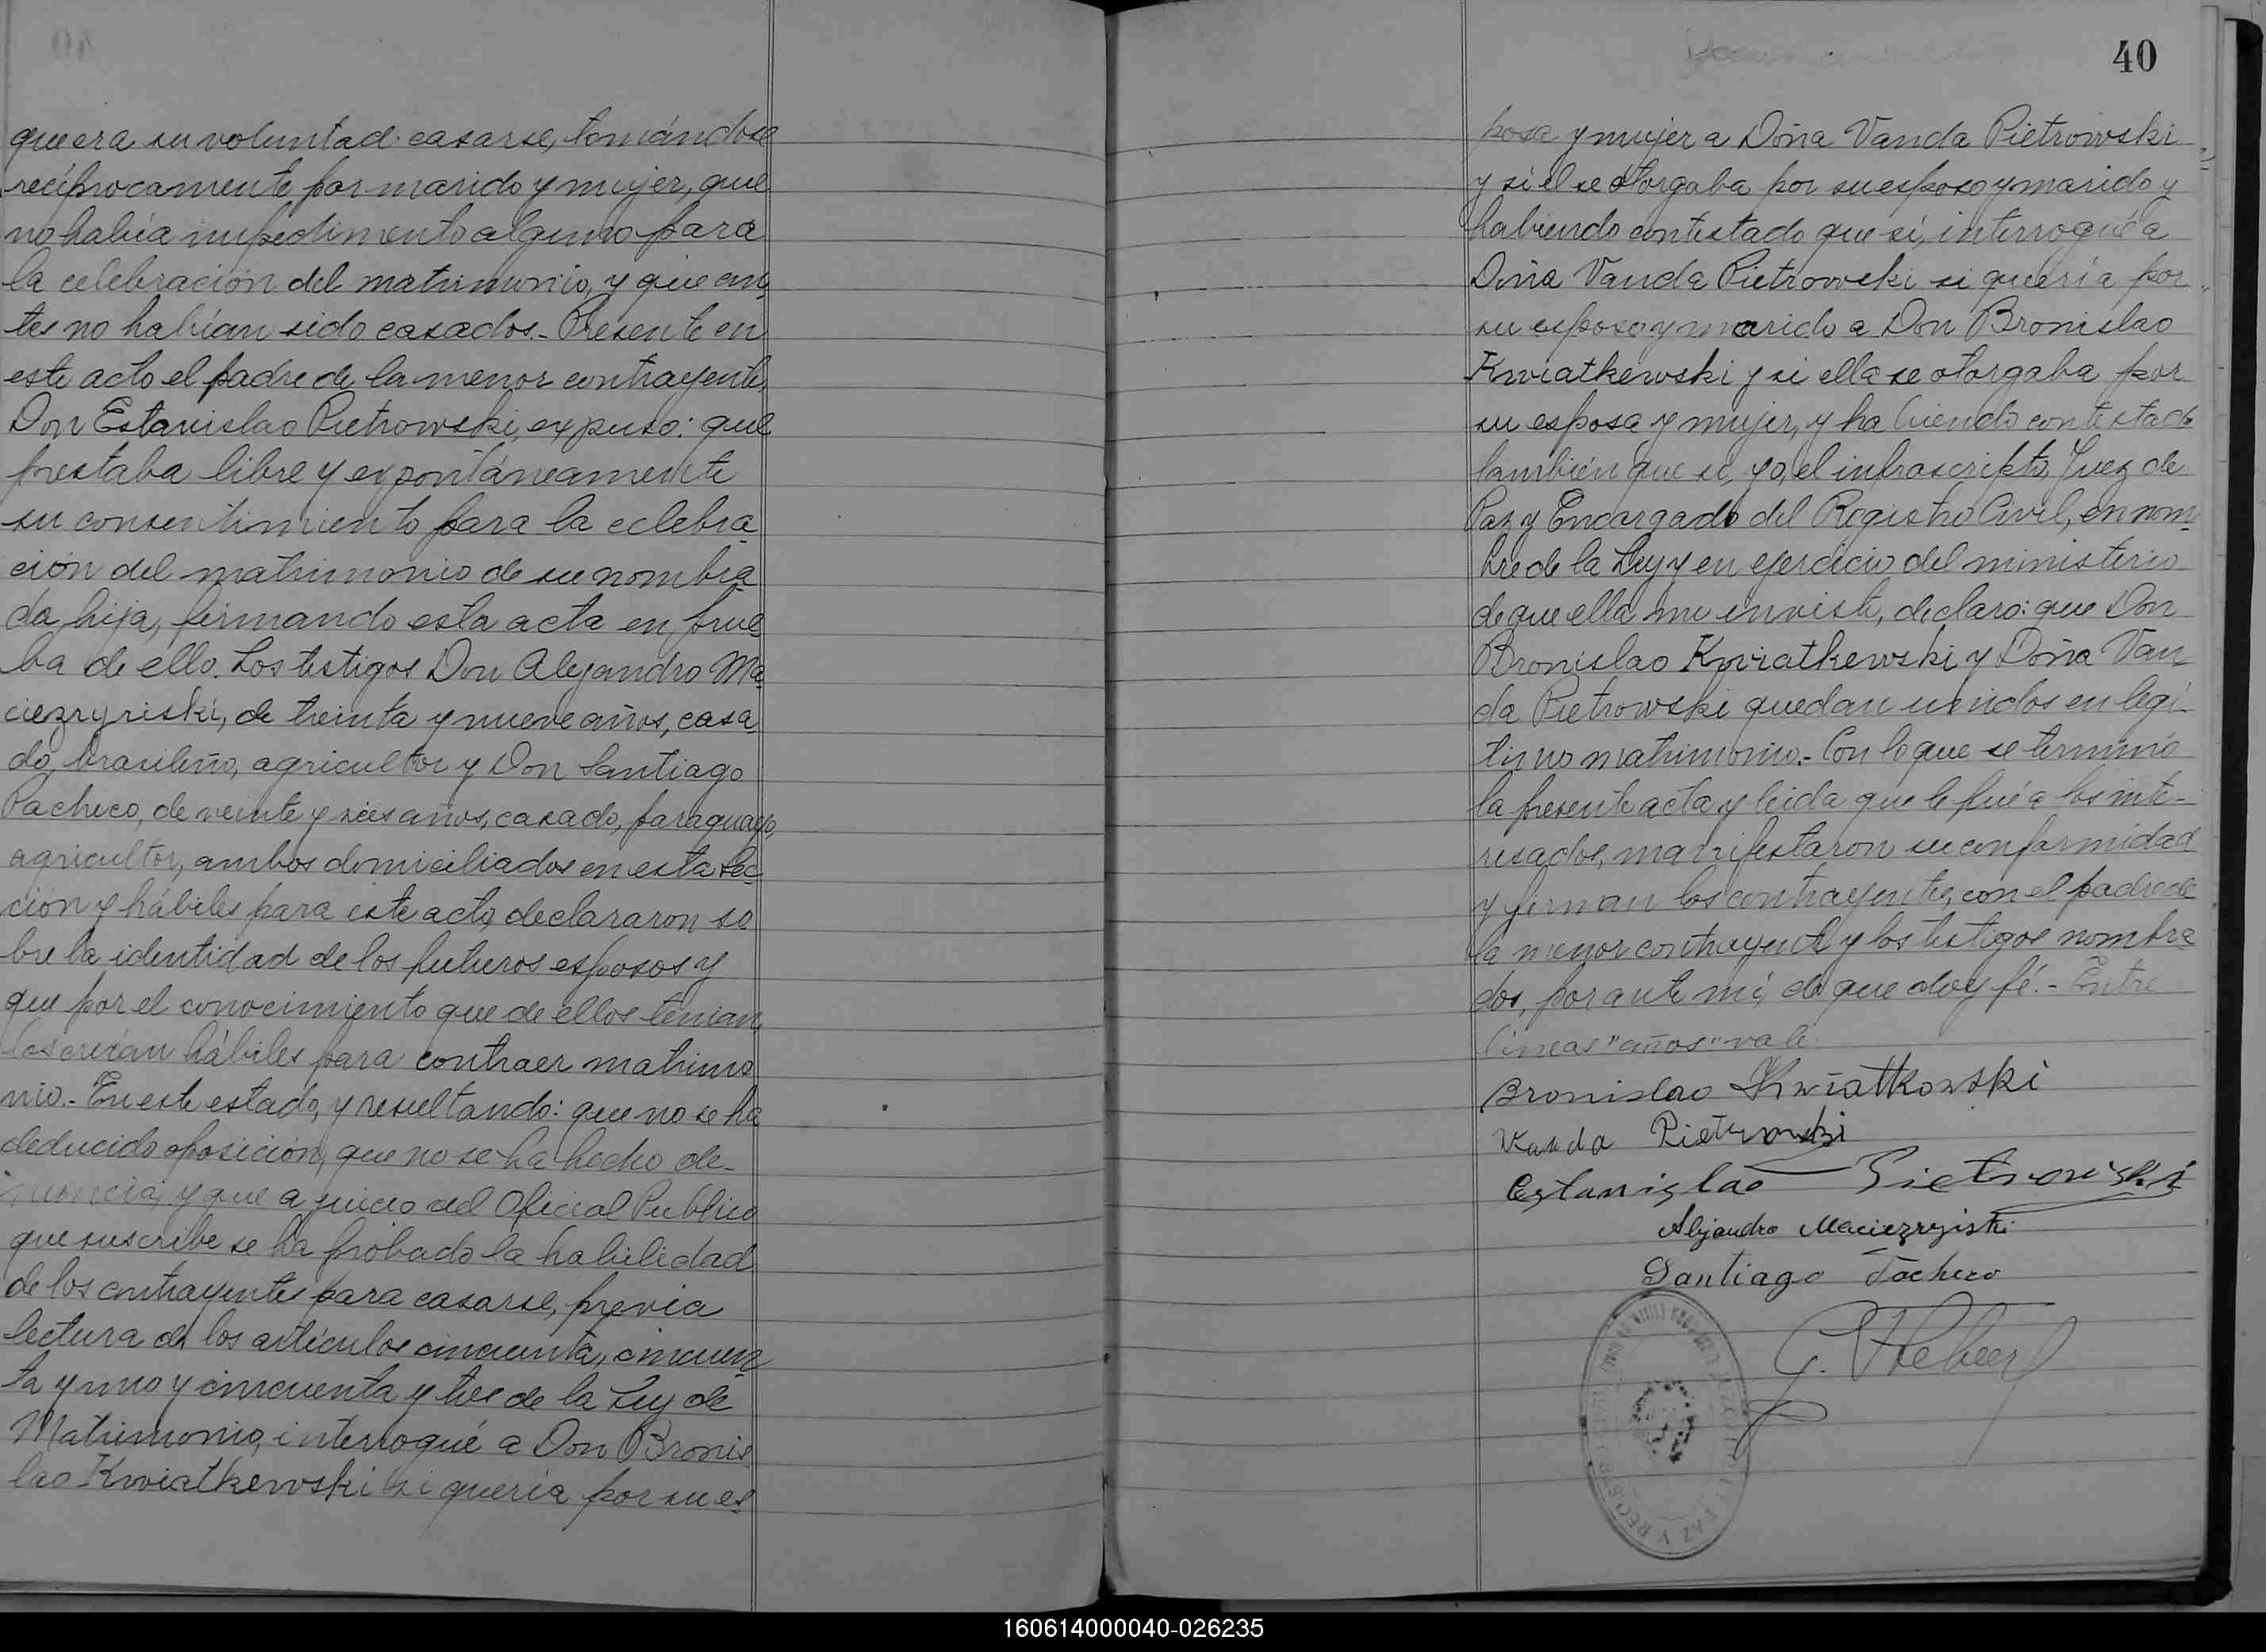 que era su voluntad casarse, tomándose
recíprocamente por marido y mujer, que
no había impedimento alguno para
la celebración del matrimonio, y que an
tes no habían sido casados.- Presente en
este acto el padre de la menor contrayente,
Don Estanislao Pietrowski, expuso: que
prestaba libre y expontáneamente
su consentimiento para la celebra
ción del matrimonio de su nombra
da hija, firmando esta acta en prue
ba de ello. Los testigos Don Alejandro Ma
ciezryriski, de treinta y nueve años, casa
do, brasileño, agricultor y Don Santiago
Pacheco, de veinte y seis años, casado, paraguayo,
agricultor, ambos domiciliados en esta sec
ción y hábiles para este acto, declararon so
bre la identidad de los futuros esposos y
que por el conocimiento que de ellos tenían,
los creían hábiles para contraer matrimo
nio.- En este estado, y resultando: que no se ha
deducido oposición, que no se ha hecho de-
nuncia, y que a juicio del Oficial Público
que suscribe se ha probado la habilidad
de los contrayentes para casarse, previa
lectura de los artículos cincuenta, cincuen
ta y uno y cincuenta y tres de la Ley de
Matrimonio, interrogué a Don Bronis
lao Kwiatkewski si quería por su es
40
posa y mujer a Doña Vanda Pietrowski
y si él se otorgaba por su esposo y marido y
habiendo contestado que sí, interrogué a
Doña Vanda Pietrowski si quería por
su esposo y marido a Don Bronislao
Kwiatkewski y si ella se otorgaba por
su esposa y mujer, y habiendo contestado
también que si, yo, el infrascripto, Juez de
Paz y Encargado del Registro Civil, en nom
bre de la Ley y en ejercicio del ministerio
de que ella me enviste, declaro: que Don
Bronislao Kwiatkewski y Doña Van
da Pietrowski quedan unidos en legí
timo matrimonio.- Con lo que se terminó
la presente acta y leida que le fué a los inte-
resados, manifestaron su conformidad
y firman los contrayentes, con el padre de
la menor contrayente y los testigos nombra
dos, por ante mí, de que doy fé.- Entre
líneas "años" vale.
Bronislao Kwiatkowski
Vanda Pietrowski
Estanislao Pietrowiski
Alejandro Maciezryjski
Santiago Pacheco
160614000040-026235